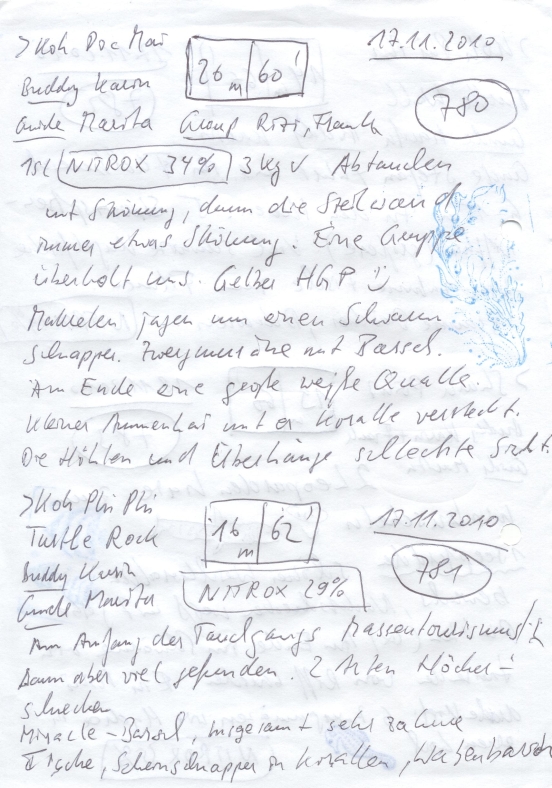 >Koh Doc Mai
26 m 60'
17.11.2010
Buddy Karin
780
Guide Marita Group Rizi, Frank
15l NITROX 34% 3 kg v Abtauchen
mit Strömung, dann die Steilwand
immer etwas Strömung. Eine Gruppe
überholt uns. Gelber HGP
Makrelen jagen um einen Schwarm
Schnapper. Zwergmuräne mit Barsch.
Am Ende eine große weiße Qualle.
Kleiner Ammenhai unter Koralle versteckt.
Die Höhlen und Überhänge schlechte Sicht.
>Koh Phi Phi
Turtle Rock
16 m 62'
17.11.2010
Buddy Karin
781
Guide Marita
NITROX 29%
Am Anfang des Tauchgangs Massentourismus
Dann aber viel gefunden. 2 Arten
schnecken
Miracle-Barsch, insgesamt sehr zahme
Fische, Schnapper in Korallen, Wabenbarsch